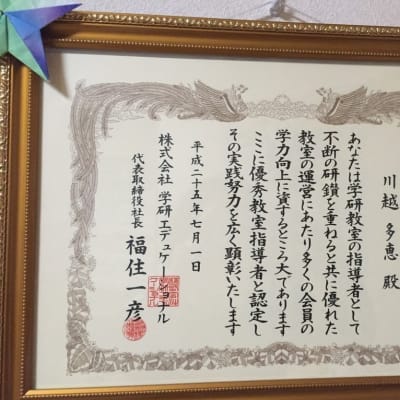 川越 多恵 殿
あなたは学研教室の指導者として
不断の研鑽を重ねると共に優れた
教室の運営にあたり多くの会員の
学力向上に資するところ大であります
ここに優秀教室指導者と認定し
その実践努力を広く顕彰いたします
平成二十五年七月一日
株式会社 学研エデュケーショナル
代表取締役社長 福住一彦